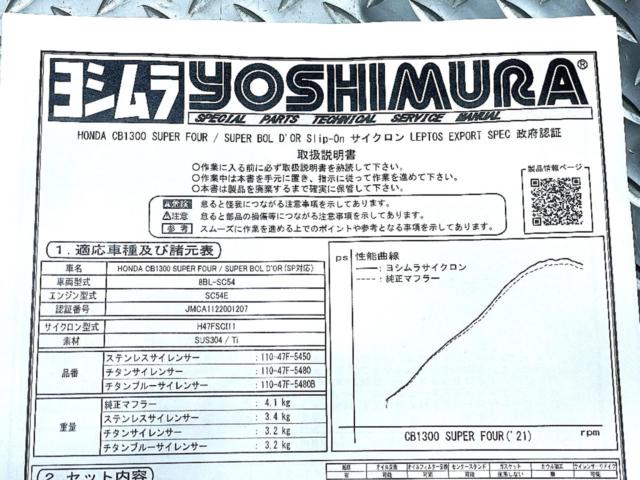 ヨシムラ YOSHIMURA®
SPECIAL PARTS TECHNICAL SERVICE MANUAL
HONDA CB1300 SUPER FOUR / SUPER BOL D'OR Slip-On サイクロン LEPTOS EXPORT SPEC 政府認証
取扱説明書
○作業に入る前に必ず取扱説明書を熟読して下さい。
○作業中は本書を手元に置き、指示に従って作業を進めて下さい。
○本書は製品を廃棄するまで確実に保管して下さい。
製品情報ページ
⚠危険 怠ると怪我につながる注意事項を示してあります。
⚠注意 怠ると部品の損傷等につながる注意事項を示してあります。
参考 スムーズに作業を進める上でのポイントや参考となる事項を示してあります。
1. 適応車種及び諸元表
車名 HONDA CB1300 SUPER FOUR / SUPER BOL D'OR(SP対応)
車両型式 8BL-SC54
エンジン型式 SC54E
認証番号 JMCA1122001207
サイクロン型式 H47FSC111
素材 SUS304 / Ti
品番 ステンレスサイレンサー :110-47F-5450
チタンサイレンサー :110-47F-5480
チタンブルーサイレンサー :110-47F-5480B
重量 純正マフラー : 4.1 kg
ステンレスサイレンサー : 3.4 kg
チタンサイレンサー : 3.2 kg
チタンブルーサイレンサー : 3.2 kg
ps 性能曲線
ヨシムラサイクロン
純正マフラー
rpm
CB1300 SUPER FOUR('21)
2. セット内容
オイル交換 オイルフィルター交換 センタースタンド ガスケット
有 可能 可能 無 可能 可能